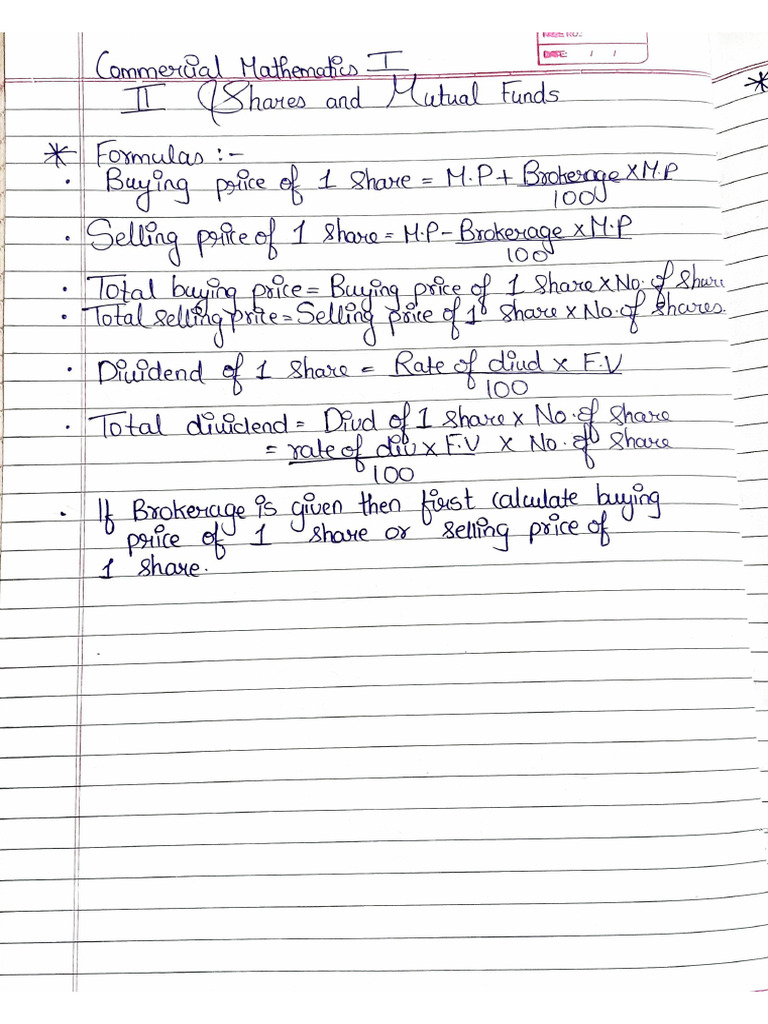 PAGE NO.:
DATE: / /
Commercial Mathematics I
II Shares and Mutual Funds
* Formulas :-
• Buying price of 1 share = M.P + Brokerage × M.P
100
• Selling price of 1 share = M.P - Brokerage × M.P
100
• Total buying price = Buying price of 1 share × No. of share
• Total selling price = Selling price of 1 share × No. of shares.
• Dividend of 1 share = Rate of divd × F.V
100
• Total dividend = Divd of 1 share × No. of share
= rate of div × F.V × No. of share
100
• If Brokerage is given then first calculate buying
price of 1 share or selling price of
1 share.